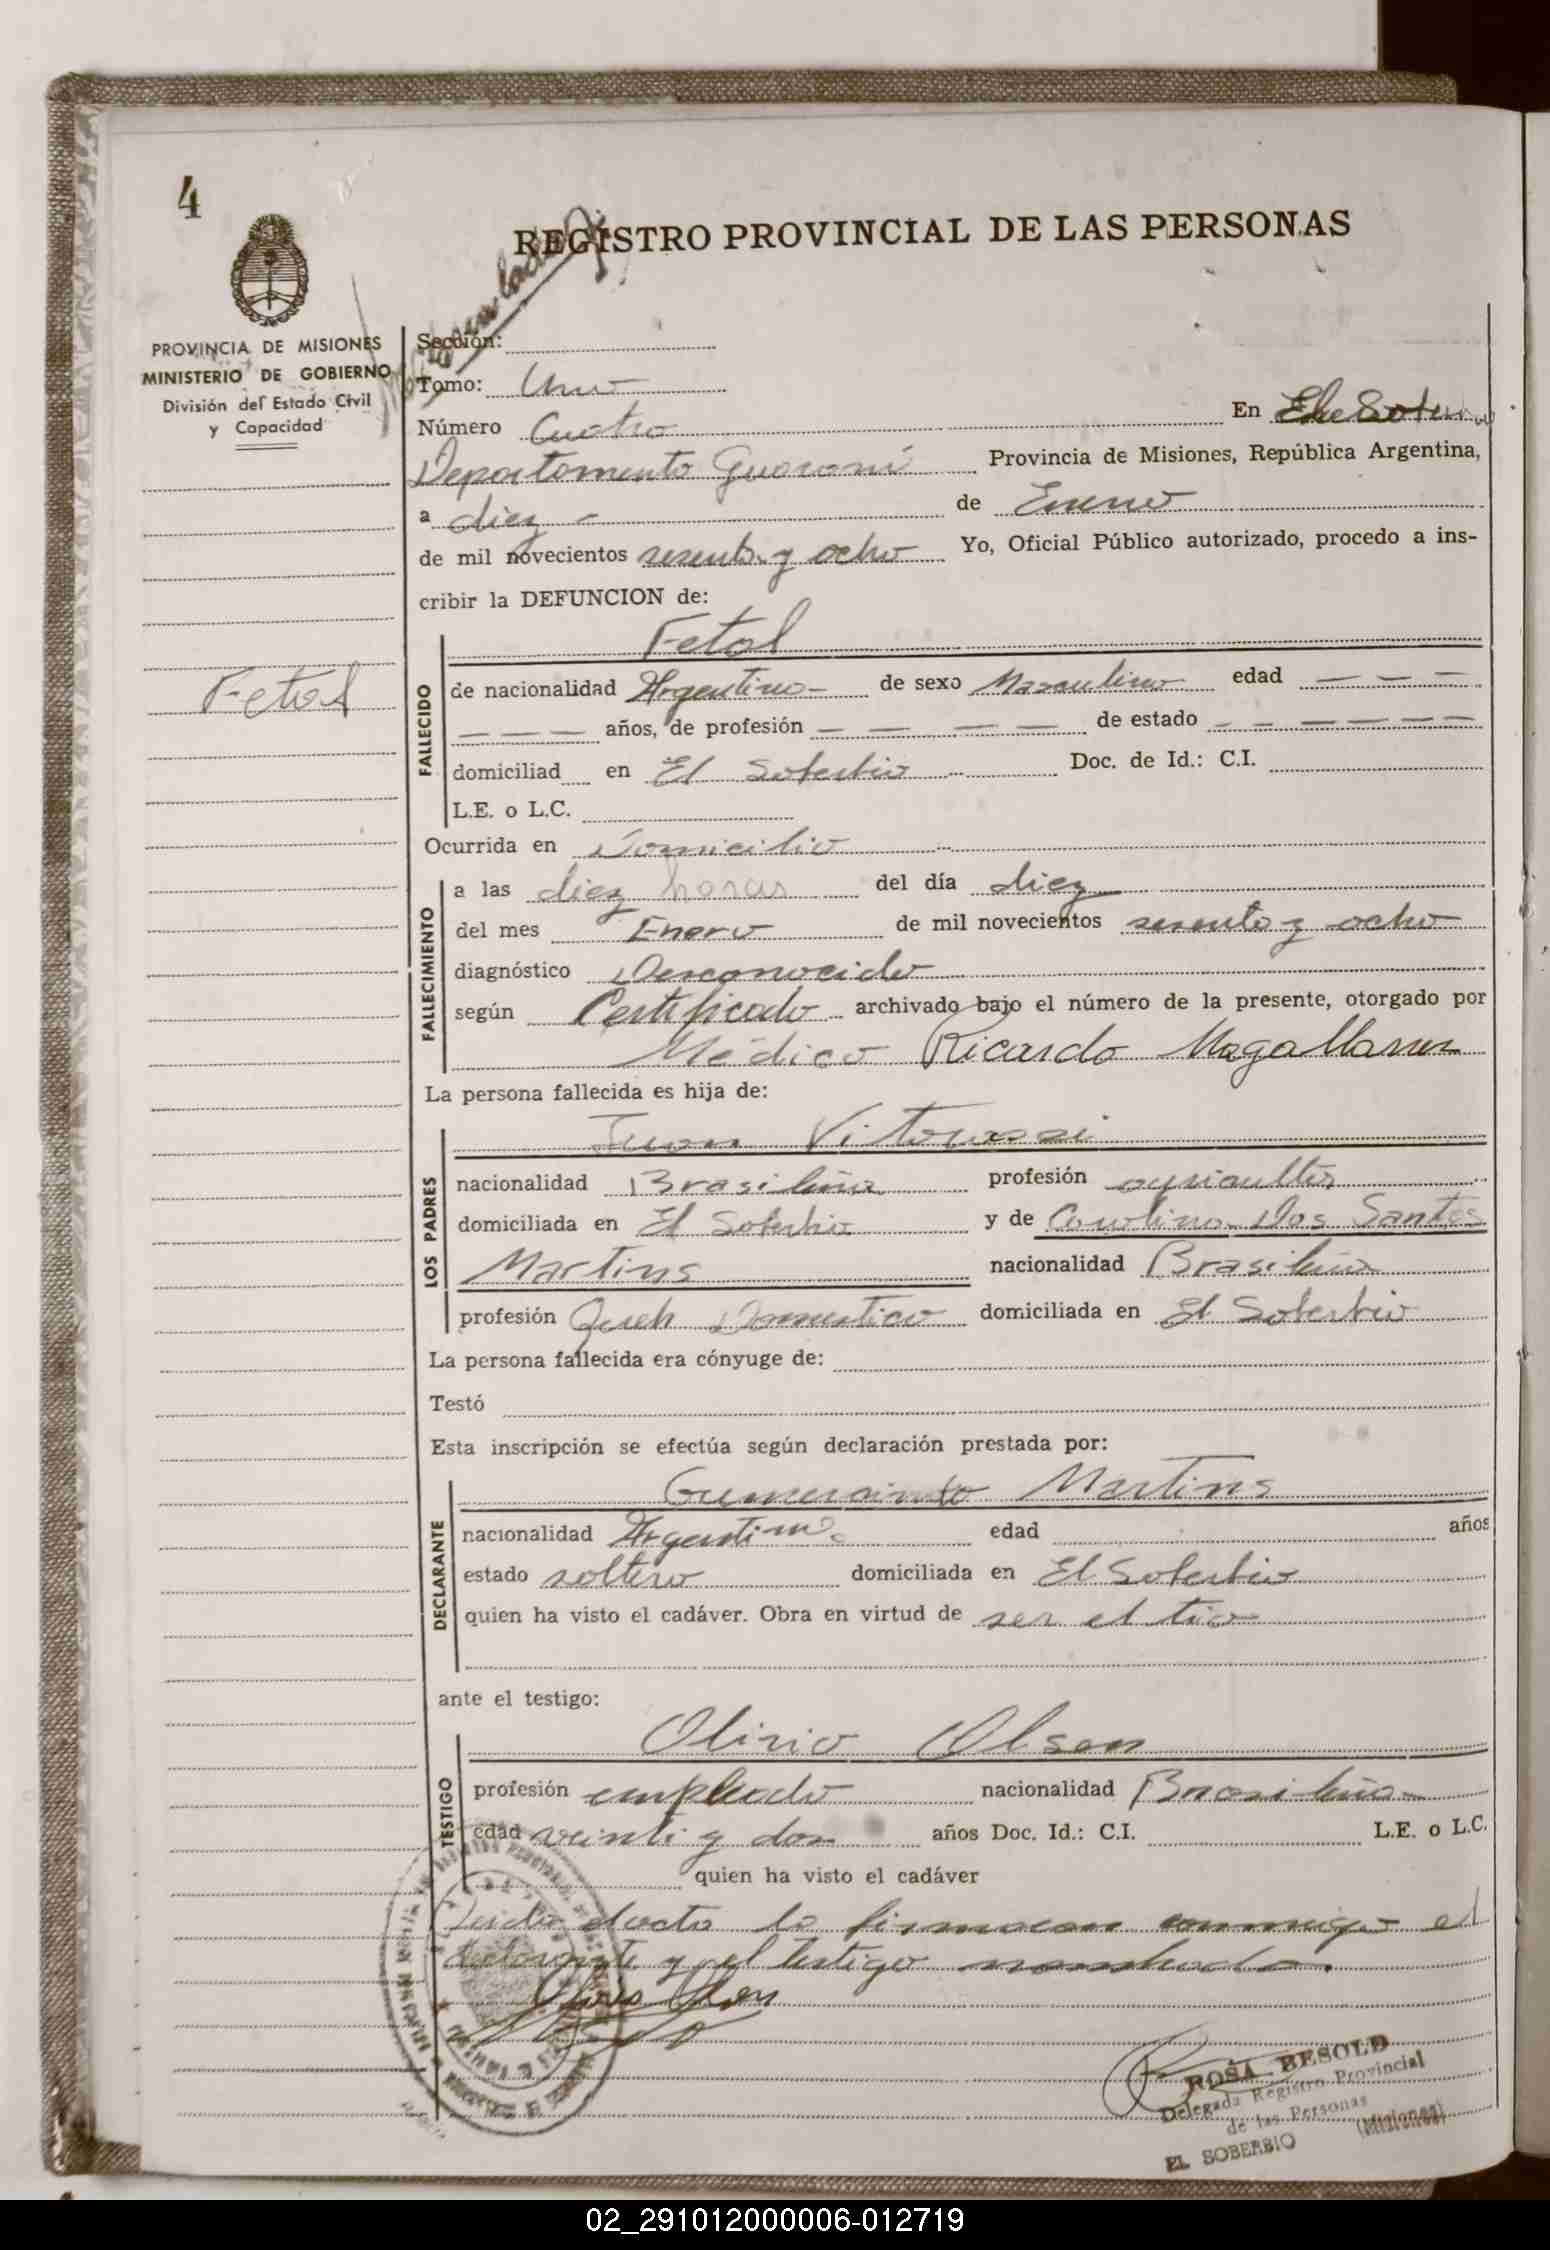 4
REGISTRO PROVINCIAL DE LAS PERSONAS
PROVINCIA DE MISIONES
MINISTERIO DE GOBIERNO
División del Estado Civil
y Capacidad
Sección:
Tomo: Uno
Número Cuatro En El Soberbio
Departamento Guaraní Provincia de Misiones, República Argentina,
a diez de Enero
de mil novecientos sesenta y ocho Yo, Oficial Público autorizado, procedo a ins-
cribir la DEFUNCION de:
Fetal
Fetal
FALLECIDO
de nacionalidad Argentino de sexo Masculino edad — — —
— — — años, de profesión — — — — de estado — — — — — —
domiciliad en El Soberbio Doc. de Id.: C.I.
L.E. o L.C.
Ocurrida en Domicilio
FALLECIMIENTO
a las diez horas del día diez
del mes Enero de mil novecientos sesenta y ocho
diagnóstico Desconocido
según Certificado archivado bajo el número de la presente, otorgado por
Médico Ricardo Magallanes
La persona fallecida es hija de:
LOS PADRES
Juan Vitorassi
nacionalidad Brasileña profesión agricultor
domiciliada en El Soberbio y de Carolina Dos Santos
Martins nacionalidad Brasileña
profesión Queh Domestico domiciliada en El Soberbio
La persona fallecida era cónyuge de:
Testó
Esta inscripción se efectúa según declaración prestada por:
DECLARANTE
Gumercindo Martins
nacionalidad Argentino edad años
estado soltero domiciliada en El Soberbio
quien ha visto el cadáver. Obra en virtud de ser el tio
ante el testigo:
TESTIGO
Olirio Olsen
profesión empleado nacionalidad Brasileña
edad veinti y dos años Doc. Id.: C.I. L.E. o L.C.
quien ha visto el cadáver
Leida el acta la firmaron conmigo el
declarante y el testigo nombrado.
Olirio Olsen
ROSA BESOLD
Delegada Registro Provincial
de las Personas
EL SOBERBIO (Misiones)
02_291012000006-012719